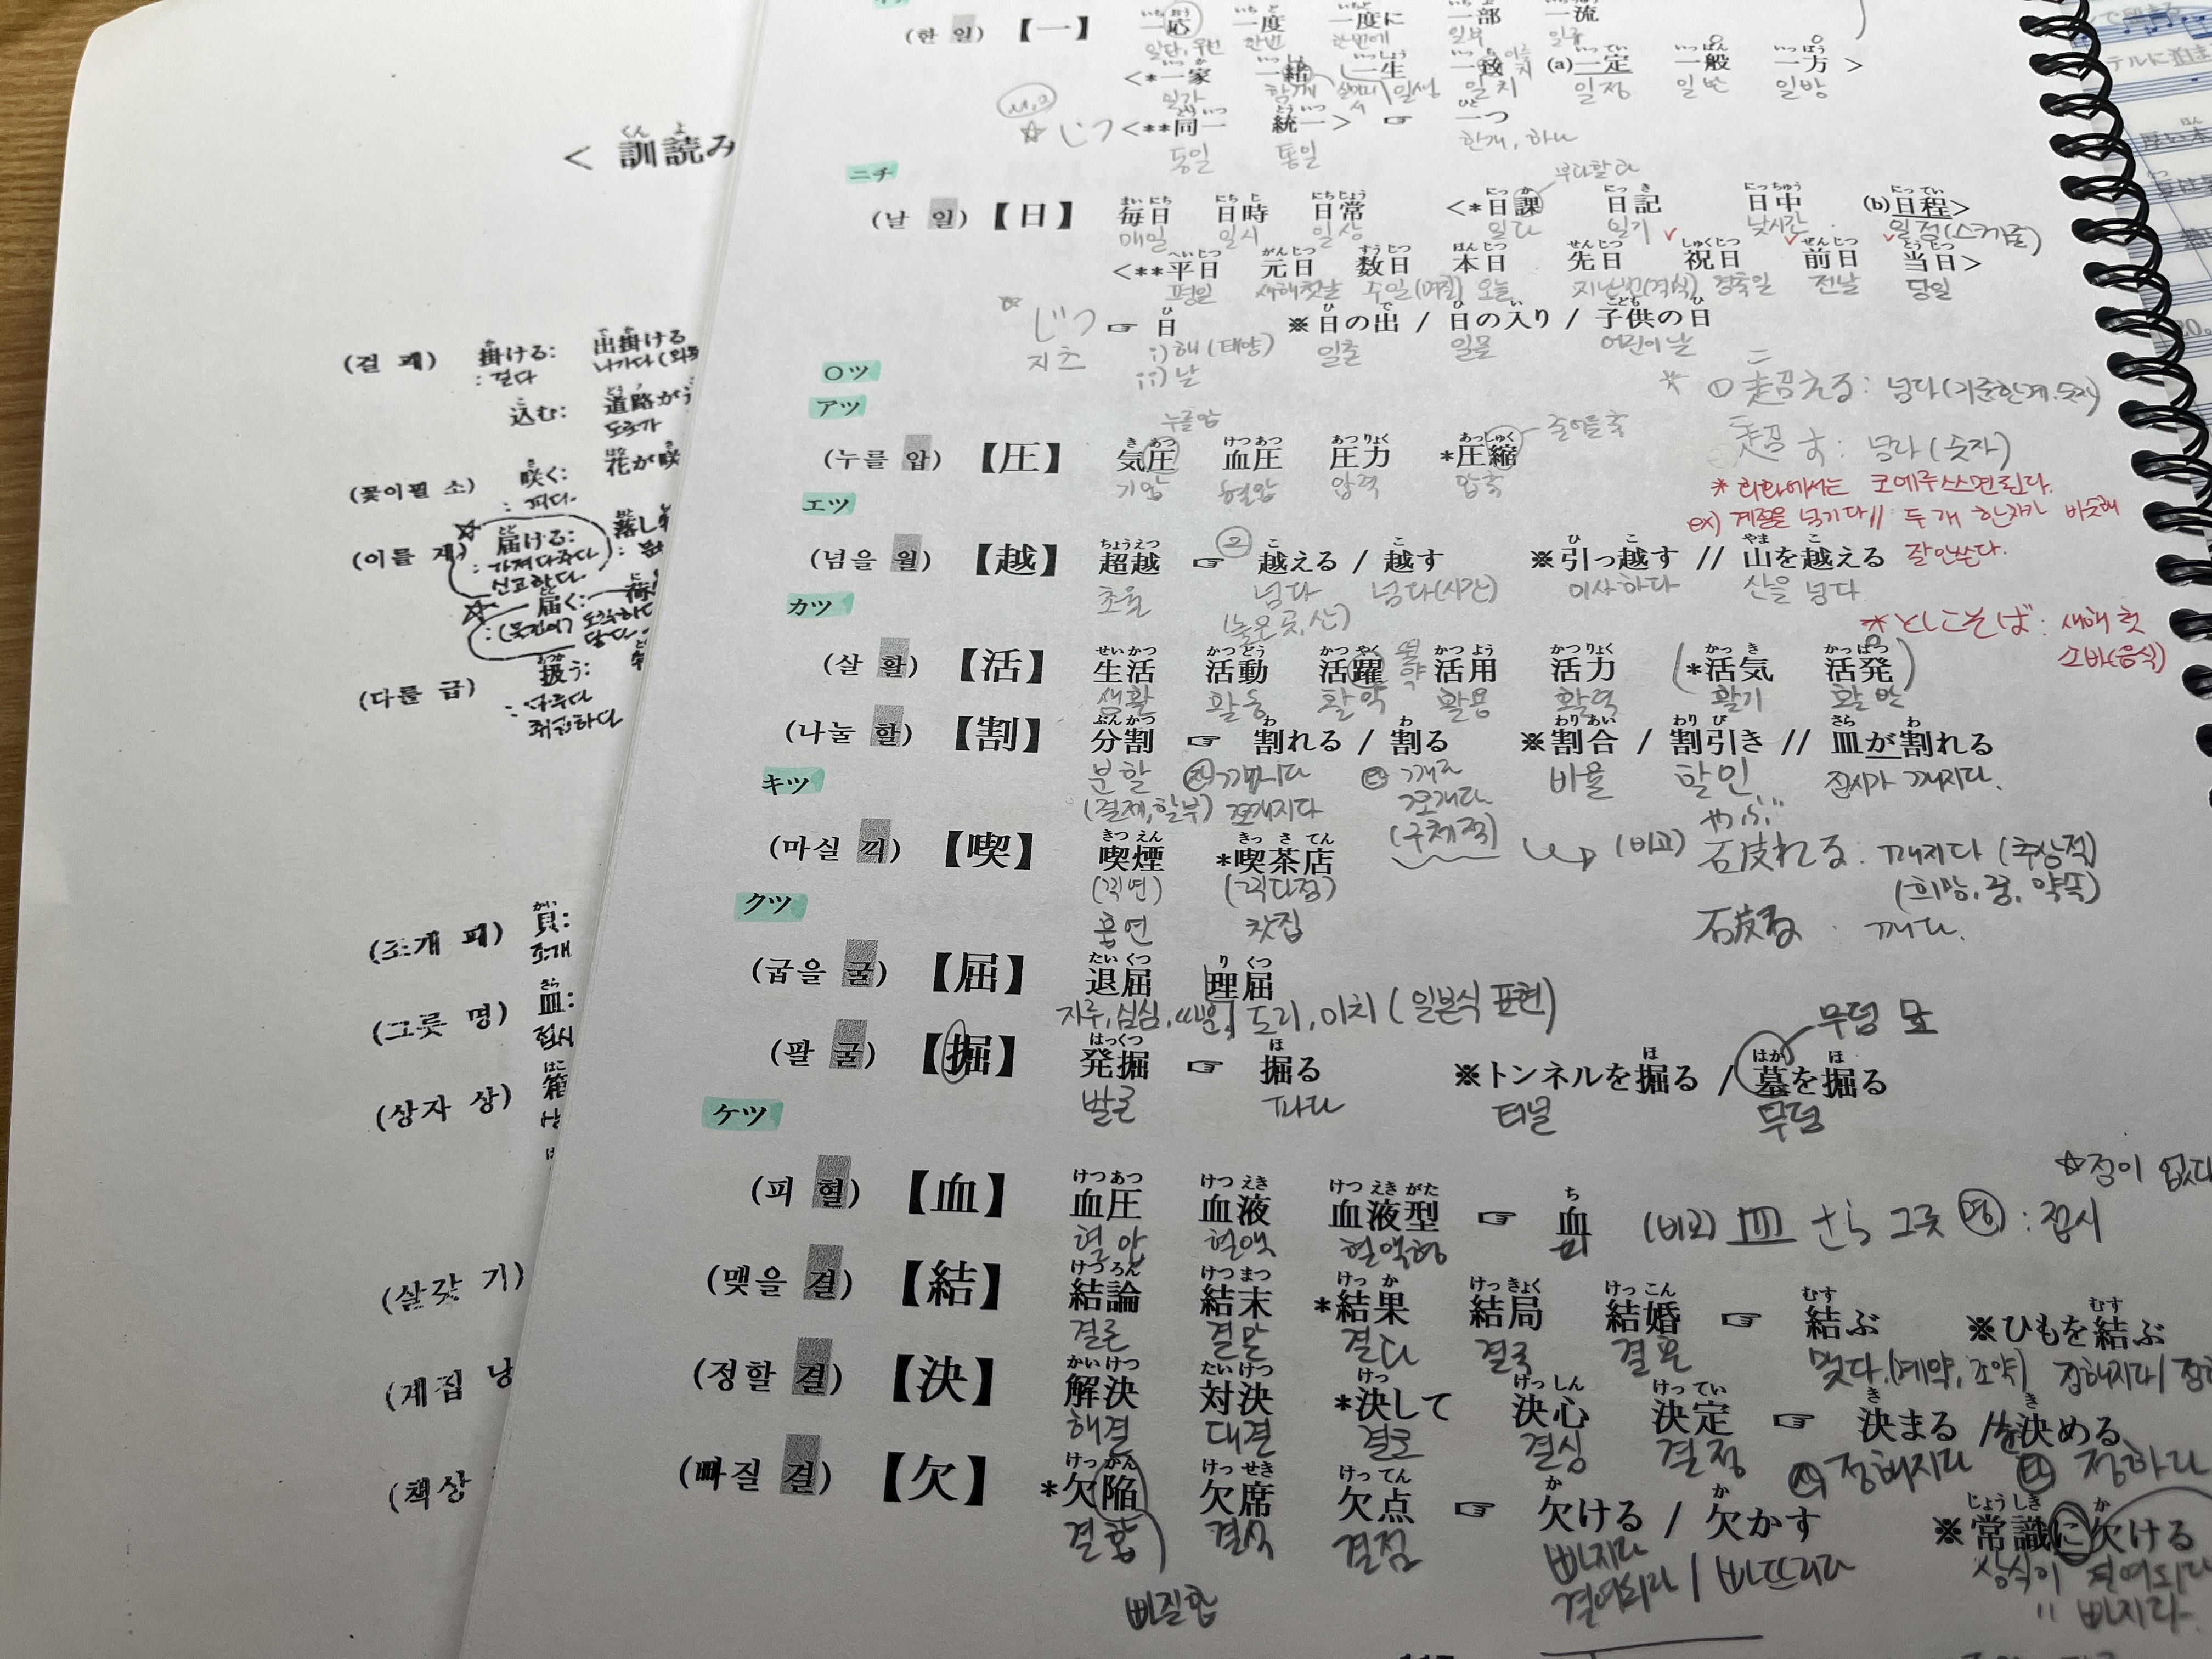 < 訓読み
(걸 괘) 掛ける: 出掛ける
: 걸다 나가다
込む: 道路が
도로가
(꽃이필 소) 咲く: 花が咲
: 피다.
(이를 계) 届ける: 落し
: 가져다주다
신고한다
届く:
(다룰 급) 扱う:
: 다루다
취급하다
(조개 패) 貝:
조개
(그릇 명) 皿:
접시
(상자 상) 箱
(살갗 기)
(계집 낭
(책상
(한 일) 【一】 一応 一度 一度に 一部 一流
일단, 우선 한번 한번에 일부 일류
<*一家 一緒 一生 一致 (a)一定 一般 一方 >
일가 함께 일생 일치 일정 일반 일방
☆ じつ <**同一 統一> ☞ 一つ
동일 통일 한개, 하나
ニチ
(날 일) 【日】 毎日 日時 日常 <*日課 日記 日中 (b)日程>
매일 일시 일상 일과 일기 낮시간 일정(스케줄)
<**平日 元日 数日 本日 先日 祝日 前日 当日>
평일 새해첫날 수일(며칠) 오늘 지난번(격식) 경축일 전날 당일
じつ ☞ 日 ※日の出 / 日の入り / 子供の日
지츠 i)해(태양) 일출 일몰 어린이날
ii)날
○ツ
アツ
누를압
(누를 압) 【圧】 気圧 血圧 圧力 *圧縮
기압 혈압 압력 압축
* ① 超える: 넘다(기준한계.숫자)
超す: 넘다(숫자)
* 회화에서는 코에루쓰면된다.
ex) 계절을 넘기다 // 두개 한자가 비슷해
잘안쓴다.
エツ
(넘을 월) 【越】 超越 ☞ ② 越える / 越す ※引っ越す // 山を越える
초월 넘다 넘다(시간) 이사하다 산을 넘다
(높은곳,산)
* としこしそば: 새해 첫
소바(음식)
カツ
(살 활) 【活】 生活 活動 活躍 活用 活力 (*活気 活発)
생활 활동 활약 활용 활력 활기 활발
(나눌 할) 【割】 分割 ☞ 割れる / 割る ※割合 / 割引き // 皿が割れる
분할 깨지다 깨다 비율 할인 접시가 깨지다.
(결제,할부) 쪼개지다 쪼개다
(구체적)
キツ
(마실 끽) 【喫】 喫煙 *喫茶店
(끽연) (끽다점)
흡연 찻집
(비교) 破れる. 깨지다 (추상적)
(희망, 꿈, 약속)
破る . 깨다.
クツ
(굽을 굴) 【屈】 退屈 理屈
지루, 심심, 따분, 도리, 이치 (일본식 표현)
(팔 굴) 【掘】 発掘 ☞ 掘る ※トンネルを掘る / 墓を掘る
발굴 파다 터널 무덤
무덤 묘
ケツ
(피 혈) 【血】 血圧 血液 血液型 ☞ 血
혈압 혈액 혈액형 피
(비교) 皿 さら 그릇 명 : 접시
☆점이 없다
(맺을 결) 【結】 結論 結末 *結果 結局 結婚 ☞ 結ぶ ※ひもを結ぶ
결론 결말 결과 결국 결혼 맺다.(계약, 조약)
(정할 결) 【決】 解決 対決 *決して 決心 決定 ☞ 決まる / を決める
해결 대결 결코 결심 결정 정해지다 정하다
(빠질 결) 【欠】 *欠陥 欠席 欠点 ☞ 欠ける / 欠かす ※常識に欠ける
결함 결석 결점 빠지다 상식이 결여되다
결여되다 / 빠뜨리다 " 빠지다.
빠질함